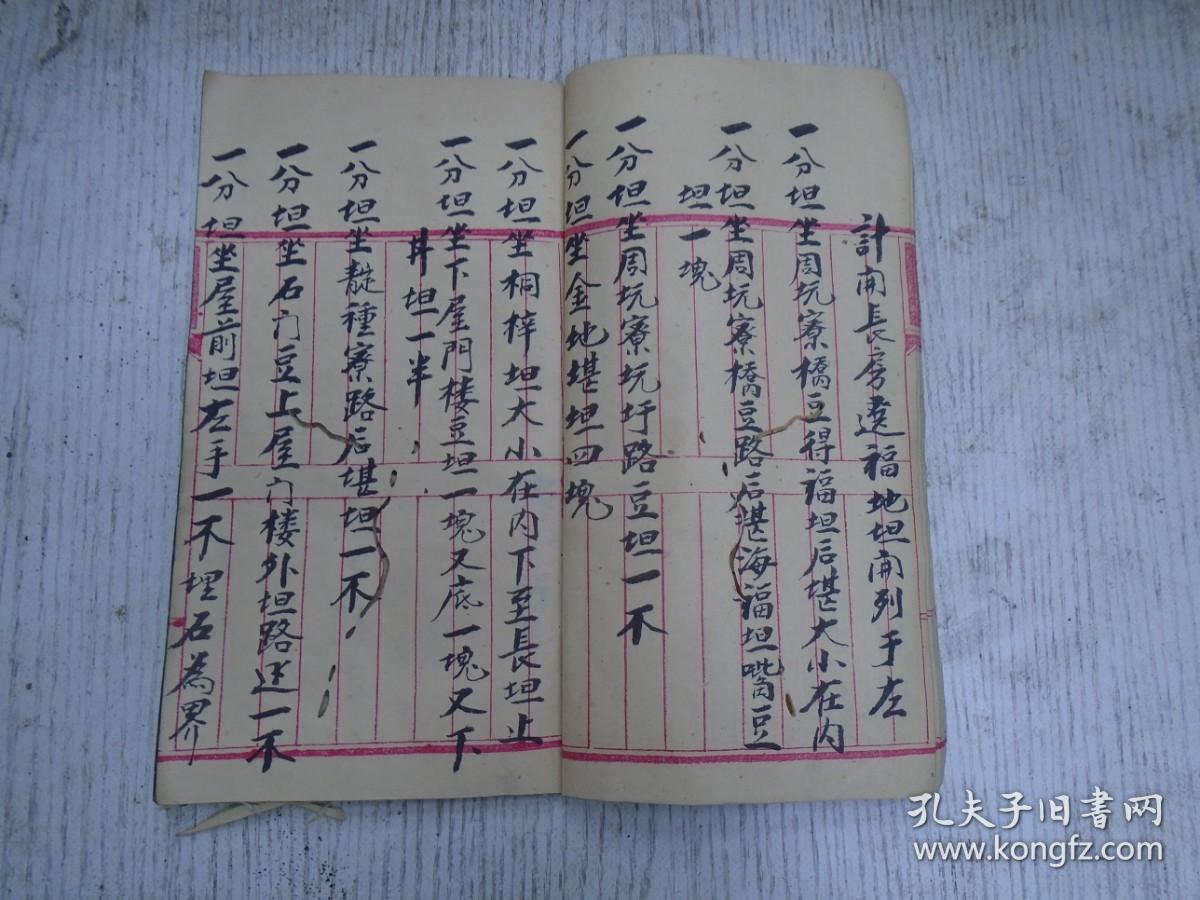 計開長房遠福地坦開列于左
一分坦坐周坑寮橋豆得福坦后堪大小在内
一分坦坐周坑寮橋豆路后堪海福坦嘴豆
坦一塊
一分坦坐周坑寮坑圩路豆坦一不
一分坦坐金地堪坦四塊
一分坦坐桐梓坦大小在内下至長坦止
一分坦坐下屋門楼豆坦一塊又底一塊又下
井坦一半
一分坦坐靛種寮路后堪坦一不
一分坦坐石门豆上屋门楼外坦路送一不
一分坦坐屋前坦左手一不埋石為界
孔夫子旧書网
www.kongfz.com